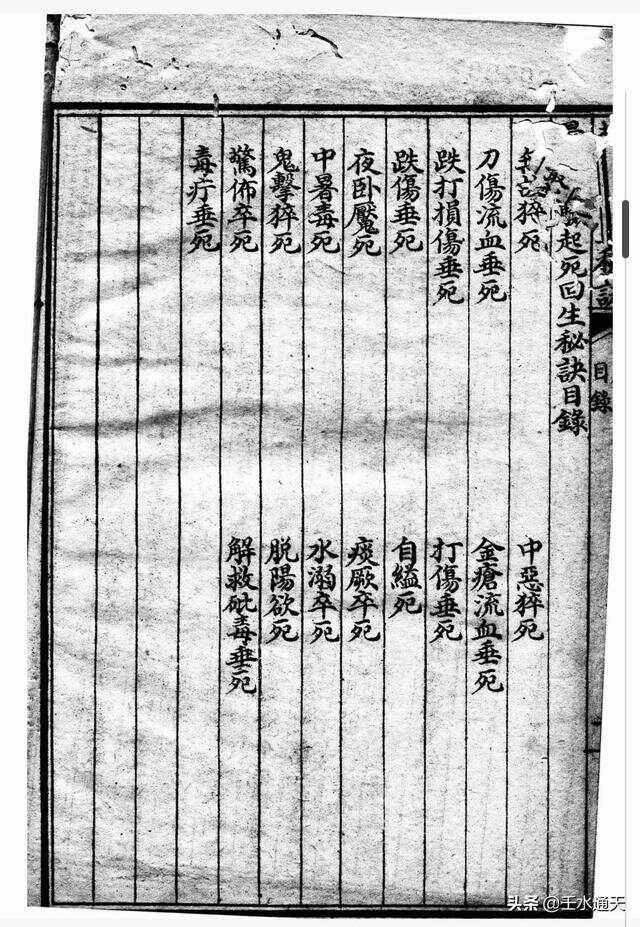 起死回生秘訣目錄
猝死
中惡猝死
刀傷流血垂死
金瘡流血垂死
跌打損傷垂死
打傷垂死
跌傷垂死
自縊死
夜卧魘死
痰厥卒死
中暑毒死
水溺卒死
鬼擊猝死
脱陽欲死
驚佈卒死
解救砒毒垂死
毒疔垂死
目錄
头条 @壬水通天